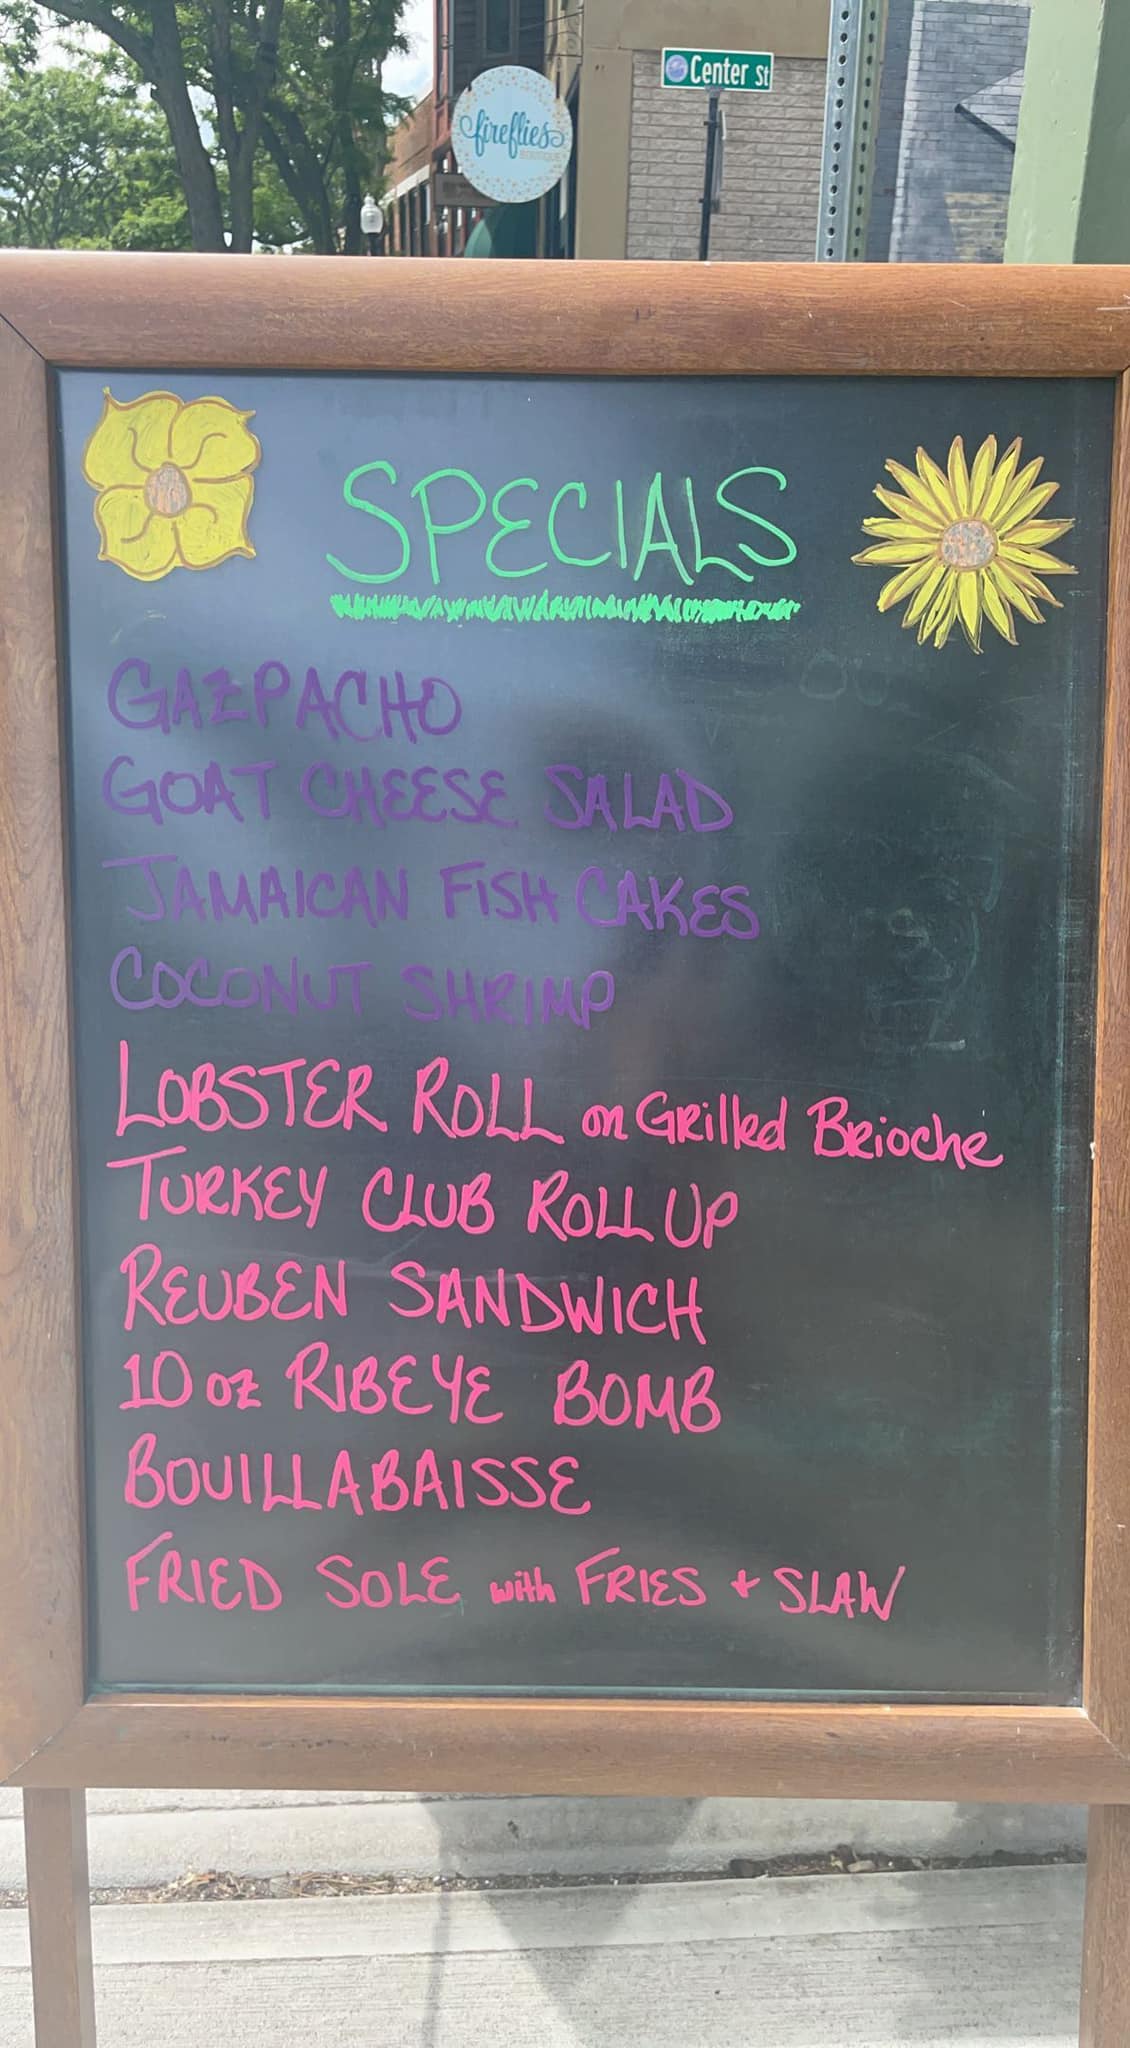 Center St
fireflies
BOUTIQUE
SPECIALS
GAZPACHO
GOAT CHEESE SALAD
JAMAICAN FISH CAKES
COCONUT SHRIMP
LOBSTER ROLL on Grilled Brioche
TURKEY CLUB ROLL UP
REUBEN SANDWICH
10 oz RIBEYE BOMB
BOUILLABAISSE
FRIED SOLE with FRIES + SLAW